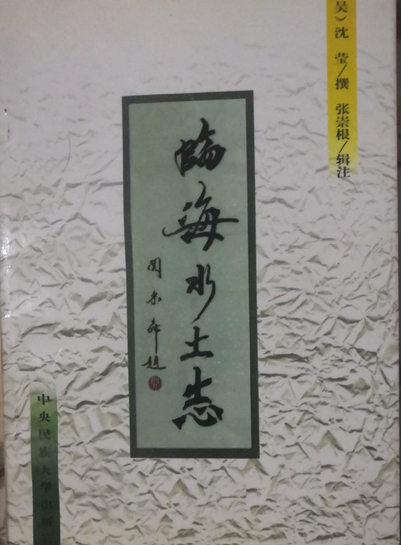 吴）沈莹/撰 张崇根/辑注
临海水土志
周东郊题
中央民族大学出版